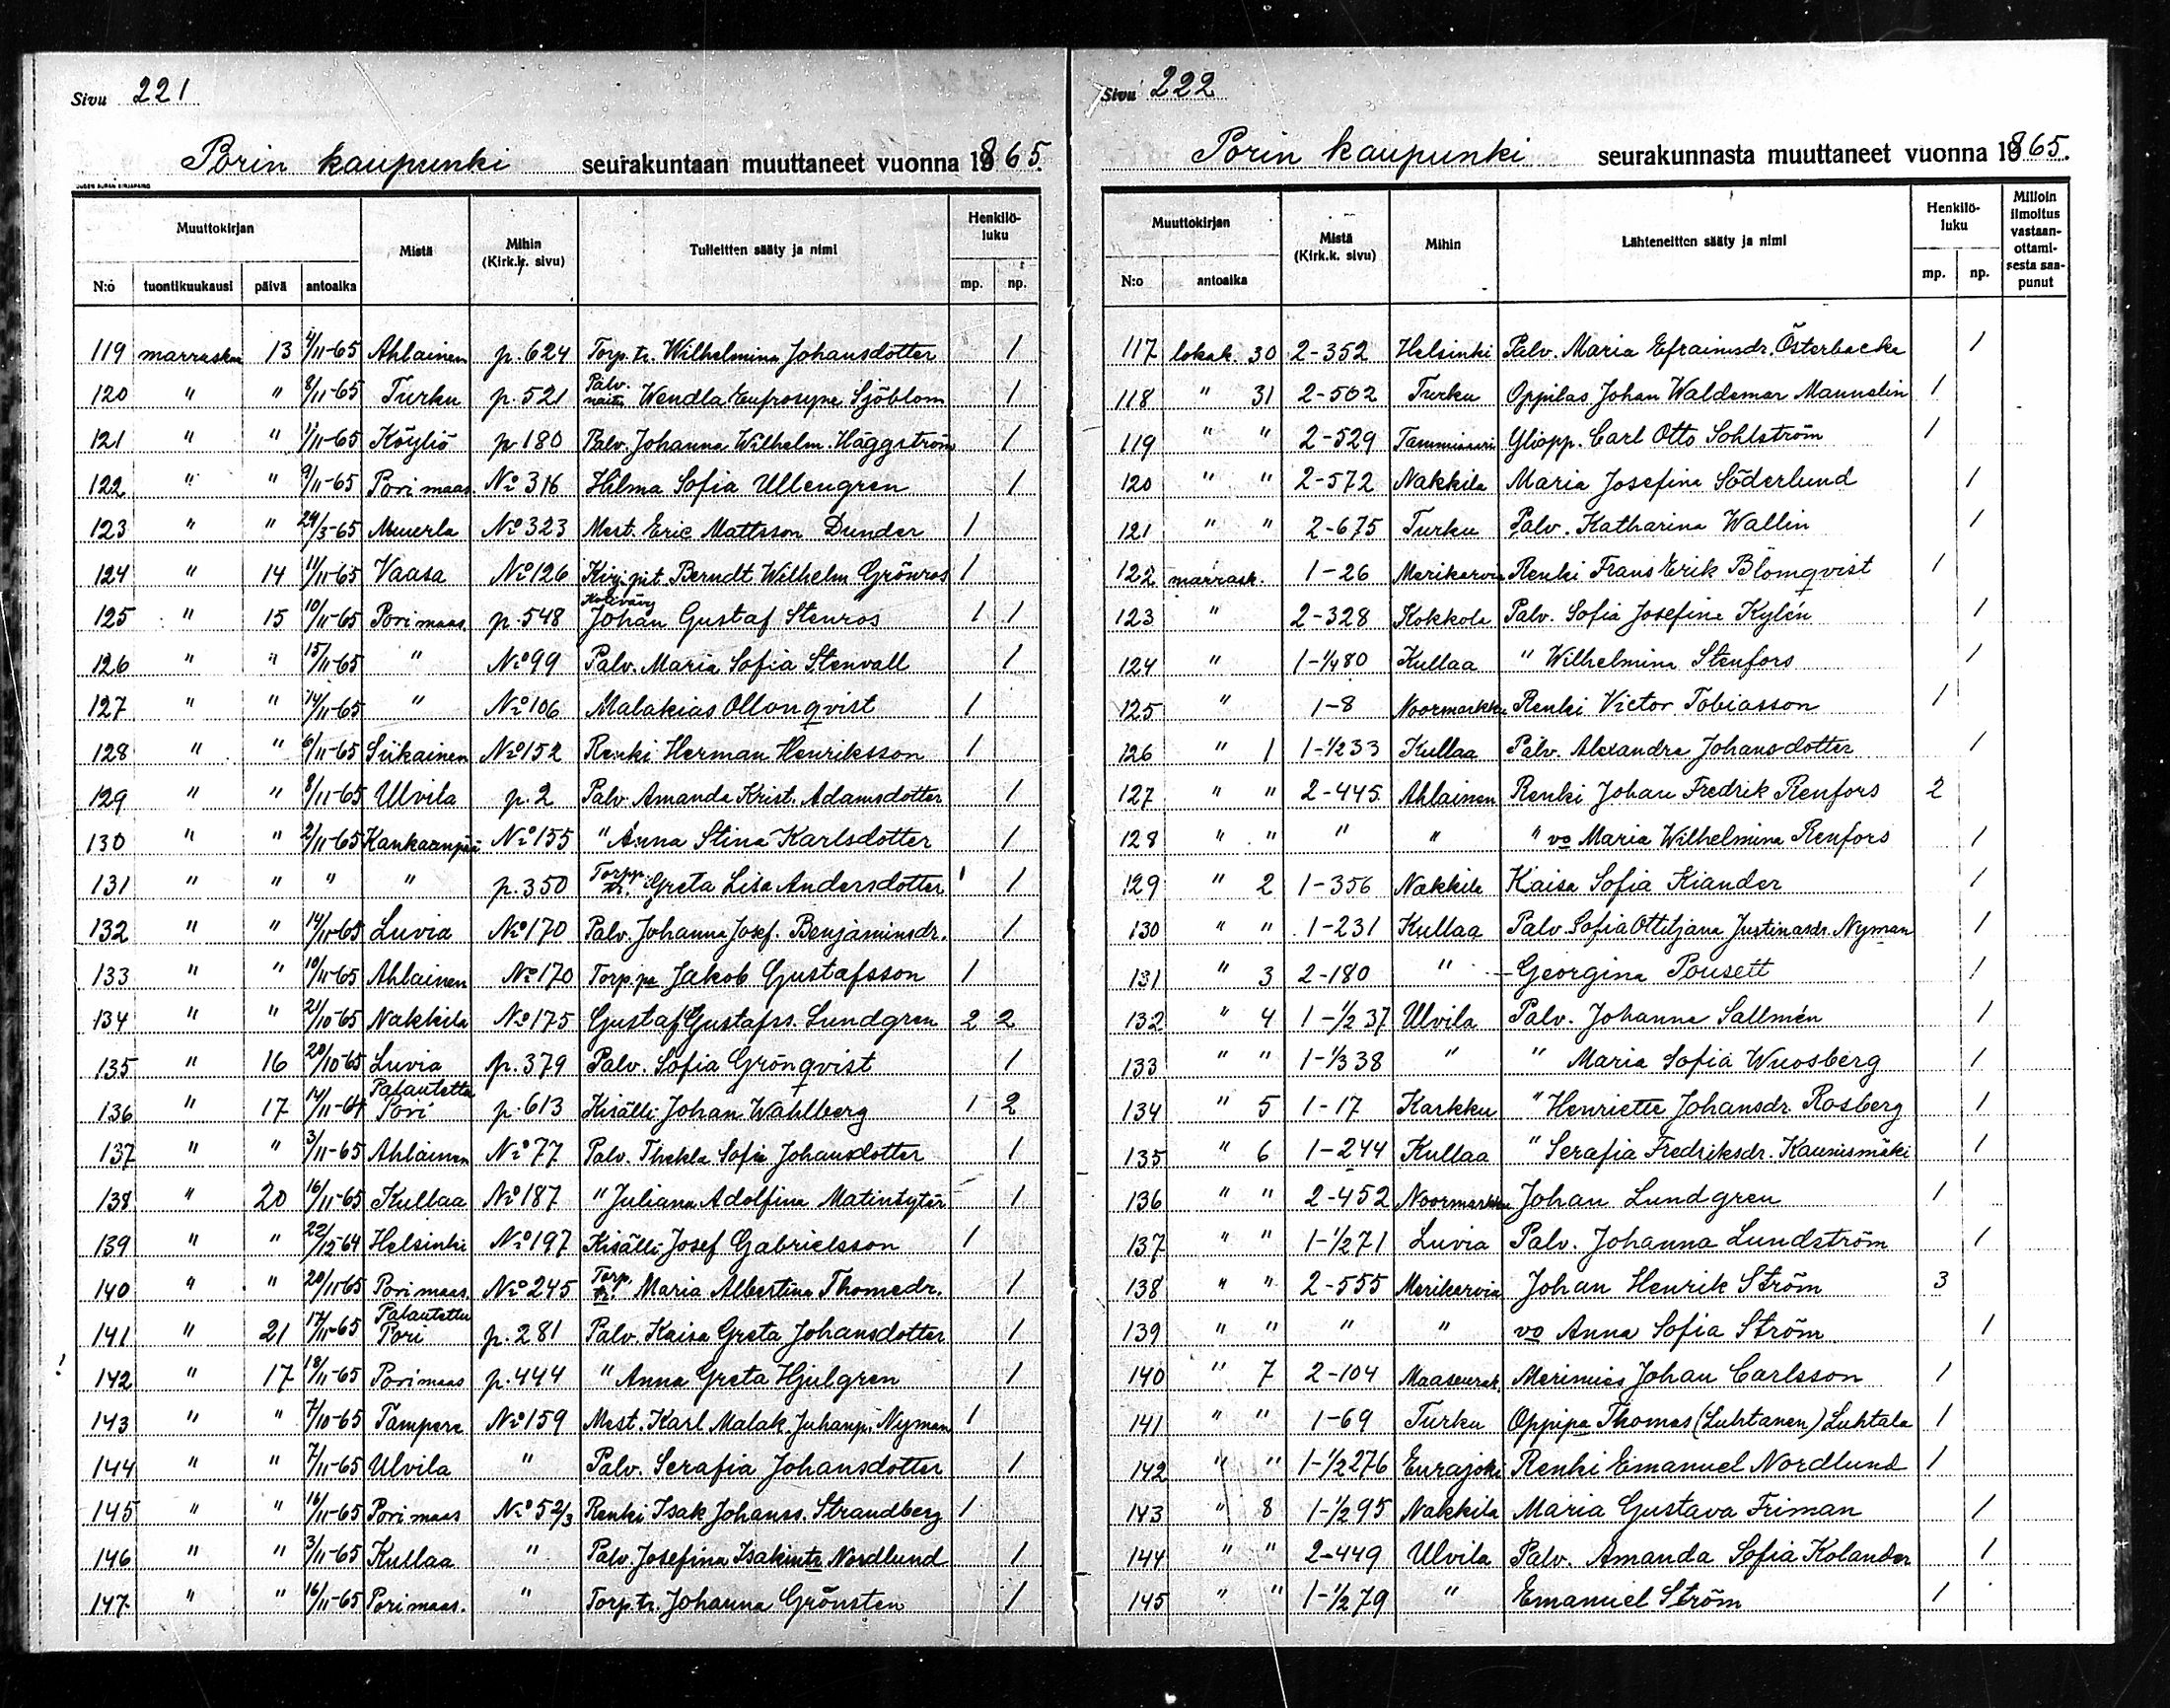 Sivu 221
Porin kaupunki seurakuntaan muuttaneet vuonna 1865.
UUDEN AURAN KIRJAPAINO
Muuttokirjan Mistä Mihin (Kirk.k. sivu) Tulleitten sääty ja nimi Henkilö-luku
N:o tuontikuukausi päivä antoaika mp. np.
119 marraskuu 13 4/11-65 Ahlainen p. 624 Torp. tr. Wilhelmina Johansdotter 1
120 " " 8/11-65 Turku p. 521 Palv. nainen Wendla Eufrosyne Sjöblom 1
121 " " 4/11-65 Köyliö p. 180 Palv. Johanna Wilhelm. Häggström 1
122 " " 9/11-65 Pori maas. No 316 Hilma Sofia Ullengren 1
123 " " 24/3-65 Muurla No 323 Mest. Eric Mattsson Dunder 1
124 " 14 11/11-65 Vaasa No 126 Kirj. pit. Berndt Wilhelm Grönros 1
125 " 15 10/11-65 Pori maas. p. 548 Johan Gustaf Stenros 1 1
126 " " 15/11-65 " No 99 Palv. Maria Sofia Stenvall 1
127 " " 14/11-65 " No 106 Malakias Ollonqvist 1
128 " " 6/11-65 Siikainen No 152 Renki Herman Henriksson 1
129 " " 8/11-65 Ulvila p. 2 Palv. Amanda Krist. Adamsdotter 1
130 " " 2/11-65 Kankaanpää No 155 " Anna Stina Karlsdotter 1
131 " " " " p. 350 Torpp. tr. Greta Lisa Andersdotter 1 1
132 " " 14/11-65 Luvia No 170 Palv. Johanna Josef. Benjaminsdr. 1
133 " " 10/11-65 Ahlainen No 170 Torp. pa Jakob Gustafsson 1
134 " " 21/10-65 Nakkila No 175 Gustaf Gustafss. Lundgren 2 2
135 " 16 20/10-65 Luvia p. 379 Palv. Sofia Grönqvist 1
136 " 17 14/11-64 Palautettu Pori p. 613 Kisälli Johan Wahlberg 1 2
137 " " 3/11-65 Ahlainen No 77 Palv. Thekla Sofia Johansdotter 1
138 " 20 16/11-65 Kullaa No 187 " Juliana Adolfina Matintytär 1
139 " " 22/12-64 Helsinki No 197 Kisälli Josef Gabrielsson 1
140 " " 20/11-65 Pori maas. No 245 Torp. tr. Maria Albertina Thomedr. 1
141 " 21 17/11-65 Palautettu Pori p. 281 Palv. Kaisa Greta Johansdotter 1
! 142 " 17 18/11-65 Pori maas p. 444 " Anna Greta Hjulgren 1
143 " " 7/10-65 Tampere No 159 Mest. Karl Malak. Juhanp. Nyman 1
144 " " 7/11-65 Ulvila " Palv. Serafia Johansdotter 1
145 " " 16/11-65 Pori maas No 52/3 Renki Isak Johanss. Strandberg 1
146 " " 3/11-65 Kullaa " Palv. Josefina Isakintr Nordlund 1
147 " " 16/11-65 Pori maas. " Torp. tr. Johanna Grönsten 1
Sivu 222
Porin kaupunki seurakunnasta muuttaneet vuonna 1865.
Muuttokirjan Mistä (Kirk.k. sivu) Mihin Lähteneitten sääty ja nimi Henkilö-luku Milloin ilmoitus vastaan-ottami-sesta saa-punut
N:o antoaika mp. np.
117 lokak. 30 2-352 Helsinki Palv. Maria Efraimsdr. Österbacka 1
118 " 31 2-502 Turku Oppilas Johan Waldemar Mannelin 1
119 " " 2-529 Tammisaari Yliopp. Carl Otto Sohlström 1
120 " " 2-572 Nakkila Maria Josefina Söderlund 1
121 " " 2-675 Turku Palv. Katharina Wallin 1
122 marrask. 1-26 Merikarvia Renki Frans Erik Blomqvist 1
123 " 2-328 Kokkola Palv. Sofia Josefina Kylén 1
124 " 1-1/480 Kullaa " Wilhelmina Stenfors 1
125 " 1-8 Noormarkku Renki Victor Tobiasson 1
126 " 1 1-1/233 Kullaa Palv. Alexandra Johansdotter 1
127 " " 2-445 Ahlainen Renki Johan Fredrik Renfors 2
128 " " " " " vo Maria Wilhelmina Renfors 1
129 " 2 1-356 Nakkila Kaisa Sofia Kiander 1
130 " " 1-231 Kullaa Palv. Sofia Ottiljana Justinasdr. Nyman 1
131 " 3 2-180 " Georgina Pousett 1
132 " 4 1-1/2 37 Ulvila Palv. Johanna Sallmén 1
133 " " 1-1/3 38 " " Maria Sofia Wuosberg 1
134 " 5 1-17 Karkku " Henriette Johansdr. Rosberg 1
135 " 6 1-244 Kullaa " Serafia Fredriksdr. Kaunismäki 1
136 " " 2-452 Noormarkku Johan Lundgren 1
137 " " 1-1/271 Luvia Palv. Johanna Lundström 1
138 " " 2-555 Merikarvia Johan Henrik Ström 3
139 " " " " vo Anna Sofia Ström 1
140 " 7 2-104 Maaseurak. Merimies Johan Carlsson 1
141 " " 1-69 Turku Oppipa Thomas (Luhtanen) Luhtala 1
142 " " 1-1/2276 Eurajoki Renki Emanuel Nordlund 1
143 " 8 1-1/295 Nakkila Maria Gustava Friman 1
144 " " 2-449 Ulvila Palv. Amanda Sofia Kolander 1
145 " " 1-1/279 " Emanuel Ström 1